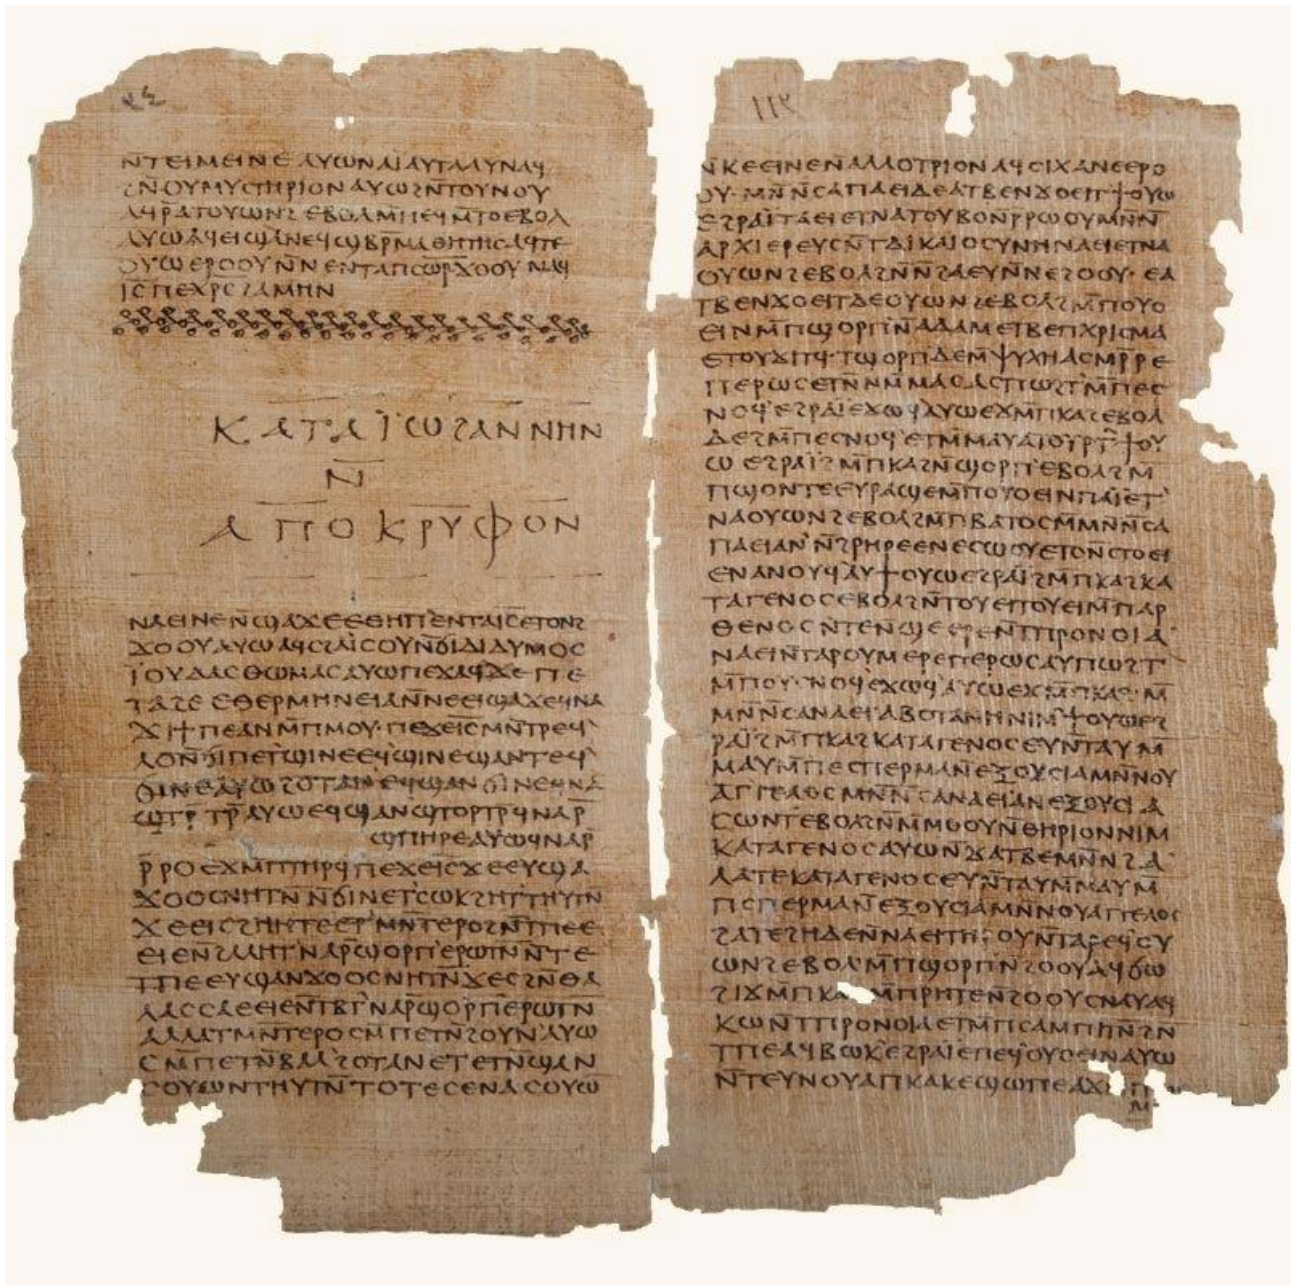 ⲛ̄ⲧⲉⲓⲙⲉⲓⲛⲉ ⲁⲩⲱ ⲛⲁⲓ ⲁⲩⲧⲁⲁⲩ ⲛⲁϥ
ϩⲛ̄ ⲟⲩⲙⲩⲥⲧⲏⲣⲓⲟⲛ ⲁⲩⲱ ϩⲛ̄ ⲧⲟⲩⲛⲟⲩ
ⲁϥⲣ̄ⲁⲧⲟⲩⲱⲛϩ ⲉⲃⲟⲗ ⲙ̄ⲡⲉϥⲙ̄ⲧⲟ ⲉⲃⲟⲗ
ⲁⲩⲱ ⲁϥⲉⲓ ϣⲁ ⲛⲉϥϣⲃⲣ̄ⲙⲁⲑⲏⲧⲏⲥ ⲁϥⲧⲉ
ⲟⲩⲱ ⲉⲣⲟⲟⲩ ⲛ̄ⲛⲉⲛⲧⲁ ⲡⲥⲱ̄ⲣ ϫⲟⲟⲩ ⲛⲁϥ
ⲓ̄ⲥ̄ ⲡⲉⲭ̄ⲣ̄ⲥ̄ ϩⲁⲙⲏⲛ
ⲕⲁⲧⲁ ⲓ̈ⲱϩⲁⲛⲛⲏⲛ
ⲛ̄
ⲁⲡⲟⲕⲣⲩⲫⲟⲛ
ⲛⲁⲉⲓ ⲛⲉ ⲛ̄ϣⲁϫⲉ ⲉⲑⲏⲡ ⲉⲛⲧⲁ ⲓ̄ⲥ̄ ⲉⲧⲟⲛϩ
ϫⲟⲟⲩ ⲁⲩⲱ ⲁϥⲥϩⲁⲓ̈ⲥⲟⲩ ⲛ̄ϭⲓ ⲇⲓⲇⲩⲙⲟⲥ
ⲓ̈ⲟⲩⲇⲁⲥ ⲑⲱⲙⲁⲥ ⲁⲩⲱ ⲡⲉϫⲁϥ ϫⲉ ⲡⲉ
ⲧⲁϩⲉ ⲉⲑⲉⲣⲙⲏⲛⲉⲓⲁ ⲛ̄ⲛⲉⲉⲓϣⲁϫⲉ ϥⲛⲁ
ϫⲓ ϯⲡⲉ ⲁⲛ ⲙ̄ⲡⲙⲟⲩ· ⲡⲉϫⲉ ⲓ̄ⲥ̄ ⲙⲛ̄ⲧⲣⲉϥ
ⲗⲟ ⲛ̄ϭⲓ ⲡⲉⲧϣⲓⲛⲉ ⲉϥϣⲓⲛⲉ ϣⲁⲛⲧⲉϥ
ϭⲓⲛⲉ ⲁⲩⲱ ϩⲟⲧⲁⲛ ⲉϥϣⲁⲛϭⲓⲛⲉ ϥⲛⲁ
ϣⲧⲣ̄ⲧⲣ̄ ⲁⲩⲱ ⲉϥϣⲁⲛϣⲧⲟⲣⲧⲣ̄ ϥⲛⲁⲣ̄
ϣⲡⲏⲣⲉ ⲁⲩⲱ ϥⲛⲁⲣ̄
ⲣ̄ⲣⲟ ⲉϫⲙ̄ ⲡⲧⲏⲣϥ ⲡⲉϫⲉ ⲓ̄ⲥ̄ ϫⲉ ⲉⲩϣⲁ
ϫⲟⲟⲥ ⲛⲏⲧⲛ̄ ⲛ̄ϭⲓ ⲛⲉⲧⲥⲱⲕ ϩⲏⲧ ⲑⲏⲩⲧⲛ̄
ϫⲉ ⲉⲓⲥϩⲏⲏⲧⲉ ⲉⲧⲙⲛ̄ⲧⲉⲣⲟ ϩⲛ̄ ⲧⲡⲉ ⲉ
ⲉⲓⲉ ⲛ̄ϩⲁⲗⲏⲧ ⲛⲁⲣ̄ϣⲟⲣⲡ ⲉⲣⲱⲧⲛ̄ ⲛ̄ⲧⲉ
ⲧⲡⲉ ⲉⲩϣⲁⲛϫⲟⲟⲥ ⲛⲏⲧⲛ̄ ϫⲉ ⲥϩⲛ̄ ⲑⲁ
ⲗⲁⲥⲥⲁ ⲉⲉⲓⲉ ⲛ̄ⲧⲃⲧ ⲛⲁⲣ̄ϣⲟⲣⲡ ⲉⲣⲱⲧⲛ̄
ⲁⲗⲗⲁ ⲧⲙⲛ̄ⲧⲉⲣⲟ ⲥⲙ̄ⲡⲉⲧⲛ̄ϩⲟⲩⲛ ⲁⲩⲱ
ⲥⲙ̄ⲡⲉⲧⲛ̄ⲃⲁⲗ ϩⲟⲧⲁⲛ ⲉⲧⲉⲧⲛ̄ϣⲁⲛ
ⲥⲟⲩⲱⲛ ⲧⲏⲩⲧⲛ̄ ⲧⲟⲧⲉ ⲥⲉⲛⲁⲥⲟⲩⲱ
ⲛ̄ⲕⲉⲉⲓⲛⲉ ⲛ̄ⲁⲗⲗⲟⲧⲣⲓⲟⲛ ⲁϥⲥⲓϫⲁⲛⲉ ⲉⲣⲟ
ⲟⲩ· ⲙⲛ̄ⲛ̄ⲥⲁ ⲡⲁⲉⲓ ⲇⲉ ⲁⲧⲃⲉⲛϫⲟⲉⲓⲧ ϯⲟⲩⲱ
ⲉϩⲣⲁⲓ̈ ⲧⲁⲉⲓ ⲉⲧⲛⲁⲧⲟⲩⲃⲟ ⲛ̄ⲣ̄ⲣⲱⲟⲩ ⲙⲛ̄ ⲛ̄
ⲁⲣⲭⲓⲉⲣⲉⲩⲥ ⲛ̄ⲧⲇⲓⲕⲁⲓⲟⲥⲩⲛⲏ ⲛⲁⲉⲓ ⲉⲧⲛⲁ
ⲟⲩⲱⲛϩ ⲉⲃⲟⲗ ϩⲛ̄ ⲛ̄ϩⲁⲉⲩ ⲛ̄ⲛⲉϩⲟⲟⲩ· ⲉⲁ
ⲧⲃⲉⲛϫⲟⲉⲓⲧ ⲇⲉ ⲟⲩⲱⲛϩ ⲉⲃⲟⲗ ϩⲙ̄ ⲡⲟⲩⲟ
ⲉⲓⲛ ⲙ̄ⲡϣⲟⲣⲡ ⲛ̄ⲁⲇⲁⲙ ⲉⲧⲃⲉ ⲡⲭⲣⲓⲥⲙⲁ
ⲉⲧⲟⲩϫⲓⲧϥ· ⲧϣⲟⲣⲡ ⲇⲉ ⲙ̄ⲯⲩⲭⲏ ⲁⲥⲙⲣ̄ⲣⲉ
ⲡⲉⲣⲱⲥ ⲉⲧⲛ̄ⲙⲙⲁⲥ ⲁⲥⲡⲱϩⲧ ⲙ̄ⲡⲉⲥ
ⲛⲟϥ ⲉϩⲣⲁⲓ̈ ⲉϫⲱϥ ⲁⲩⲱ ⲉϫⲙ̄ ⲡⲕⲁϩ ⲉⲃⲟⲗ
ⲇⲉ ϩⲙ̄ ⲡⲉⲥⲛⲟϥ ⲉⲧⲙ̄ⲙⲁⲩ ⲁ ⲡⲟⲩⲣⲧ ϯⲟⲩ
ⲱ ⲉϩⲣⲁⲓ̈ ϩⲙ̄ ⲡⲕⲁϩ ⲛ̄ϣⲟⲣⲡ ⲉⲃⲟⲗ ϩⲙ̄
ⲡϣⲟⲛⲧⲉ ⲉⲩⲣⲁϣⲉ ⲙ̄ⲡⲟⲩⲟⲉⲓⲛ ⲡⲁⲓ̈ ⲉⲧ
ⲛⲁⲟⲩⲱⲛϩ ⲉⲃⲟⲗ ϩⲙ̄ ⲡⲃⲁⲧⲟⲥ ⲙ̄ⲙⲛ̄ⲛ̄ⲥⲁ
ⲡⲁⲉⲓ ⲁⲛ ⲛ̄ϩⲣⲏⲣⲉ ⲉⲛⲉⲥⲱⲟⲩ ⲉⲧⲟⲛ̄ ⲥⲧⲟⲉⲓ
ⲉⲛⲁⲛⲟⲩϥ ⲁⲩϯⲟⲩⲱ ⲉϩⲣⲁⲓ̈ ϩⲙ̄ ⲡⲕⲁϩ ⲕⲁ
ⲧⲁ ⲅⲉⲛⲟⲥ ⲉⲃⲟⲗ ϩⲛ̄ ⲧⲟⲩⲉⲓ ⲧⲟⲩⲉⲓ ⲙ̄ⲡⲁⲣ
ⲑⲉⲛⲟⲥ ⲛ̄ⲧⲉ ⲛ̄ϣⲉⲉⲣⲉ ⲛ̄ⲧⲡⲣⲟⲛⲟⲓⲁ
ⲛⲁⲉⲓ ⲛ̄ⲧⲁⲣⲟⲩⲙⲉⲣⲉ ⲡⲉⲣⲱⲥ ⲁⲩⲡⲱϩⲧ
ⲙ̄ⲡⲟⲩⲥⲛⲟϥ ⲉϫⲱϥ ⲁⲩⲱ ⲉϫⲙ̄ ⲡⲕⲁϩ ⲙ̄
ⲙⲛ̄ⲛ̄ⲥⲁ ⲛⲁⲉⲓ ⲁ ⲃⲟⲧⲁⲛⲏ ⲛⲓⲙ ϯⲟⲩⲱ ⲉϩ
ⲣⲁⲓ̈ ϩⲙ̄ ⲡⲕⲁϩ ⲕⲁⲧⲁ ⲅⲉⲛⲟⲥ ⲉⲩⲛ̄ⲧⲁⲩ ⲙ̄
ⲙⲁⲩ ⲙ̄ⲡⲉⲥⲡⲉⲣⲙⲁ ⲛ̄ⲉⲝⲟⲩⲥⲓⲁ ⲙⲛ̄ ⲛⲟⲩ
ⲁⲅⲅⲉⲗⲟⲥ ⲙⲛ̄ⲛ̄ⲥⲁ ⲛⲁⲉⲓ ⲁ ⲛⲉⲝⲟⲩⲥⲓⲁ
ⲥⲱⲛⲧ ⲉⲃⲟⲗ ϩⲛ̄ ⲙ̄ⲙⲟⲩ ⲛ̄ⲑⲏⲣⲓⲟⲛ ⲛⲓⲙ
ⲕⲁⲧⲁ ⲅⲉⲛⲟⲥ ⲁⲩⲱ ⲛ̄ϫⲁⲧⲃⲉ ⲙⲛ̄ ⲛ̄ϩⲁ
ⲗⲁⲧⲉ ⲕⲁⲧⲁ ⲅⲉⲛⲟⲥ ⲉⲩⲛ̄ⲧⲁⲩ ⲙ̄ⲙⲁⲩ ⲙ̄
ⲡⲥⲡⲉⲣⲙⲁ ⲛ̄ⲉⲝⲟⲩⲥⲓⲁ ⲙⲛ̄ ⲛⲟⲩⲁⲅⲅⲉⲗⲟⲥ
ϩⲁⲧⲉϩⲏ ⲇⲉ ⲛ̄ⲛⲁⲉⲓ ⲧⲏⲣⲟⲩ ⲛ̄ⲧⲁⲣⲉϥⲟⲩ
ⲱⲛϩ ⲉⲃⲟⲗ ⲙ̄ⲡϣⲟⲣⲡ ⲛ̄ϩⲟⲟⲩ ⲁϥϭⲱ
ϩⲓϫⲙ̄ ⲡⲕⲁϩ ⲙ̄ⲡⲣⲏⲧⲉ ⲛ̄ϩⲟⲟⲩ ⲥⲛⲁⲩ ⲁϥ
ⲕⲱ ⲛ̄ⲧⲡⲣⲟⲛⲟⲓⲁ ⲉⲧⲙ̄ⲡⲥⲁⲙⲡⲓⲧⲛ̄ ϩⲛ̄
ⲧⲡⲉ ⲁϥⲃⲱⲕ ⲉϩⲣⲁⲓ̈ ⲉⲡⲉϥⲟⲩⲟⲉⲓⲛ ⲁⲩⲱ
ⲛ̄ⲧⲉⲩⲛⲟⲩ ⲁ ⲡⲕⲁⲕⲉ ϣⲱⲡⲉ